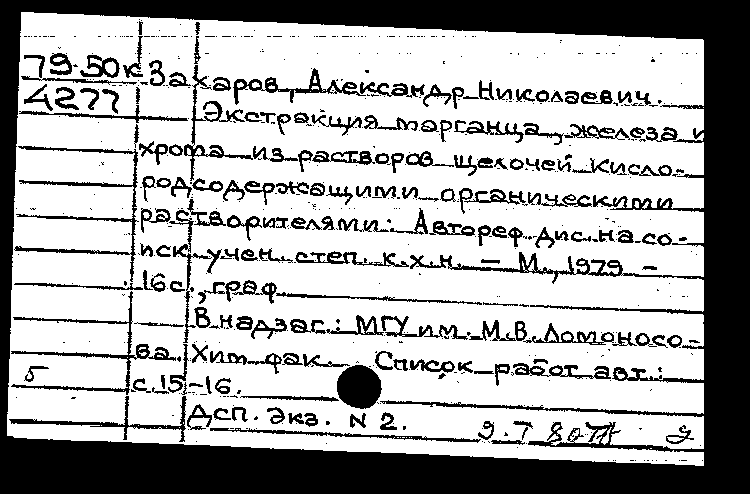 79.50к Захаров, Александр Николаевич.
4277 Экстракция марганца, железа и
хрома из растворов щелочей кисло-
родсодержащими органическими
растворителями: Автореф. дис. на со-
иск. учен. степ. к.х.н. – М., 1979 –
16с., граф.
В надзаг.: МГУ им. М.В. Ломоносо-
ва. Хим. фак. Список работ авт.:
5 с. 15-16.
Дсп. Экз. N 2.